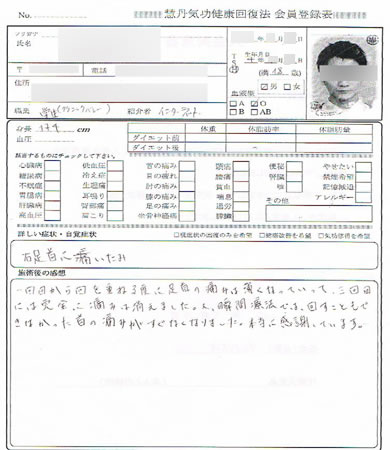 No.
慧丹気功健康回復法 会員登録表
フリガナ
氏名
生年月日
T S H 年 月 日
(満 歳)
男 女
〒 電話
住所
血液型
A O
B AB
職業 学生 紹介者 インターネット
身長 cm
血圧
体重 体脂肪率 体脂肪量
ダイエット前
ダイエット後
該当するものにチェックして下さい。
心臓病 低血圧 首の痛み 頭痛 便秘 やせたい
糖尿病 冷え症 目の疲れ 腰痛 腎臓 禁煙希望
不眠症 生理痛 肘の痛み 貧血 痔 記憶減退
胃腸病 耳鳴り 膝の痛み 喘息 アレルギー
肝臓病 背部痛 足の痛み 過労 その他
高血圧 肩こり 坐骨神経痛 膵臓
詳しい症状・自覚症状
右足首に痛いたみ
施術後の感想
一回目から回を重ねる度に足首の痛みは薄くなっていって、三回目
には完全に痛みは消えました。又、瞬間療法では、回すことも
できなかった首の痛みがすぐなくなりました。本当に感謝しています。